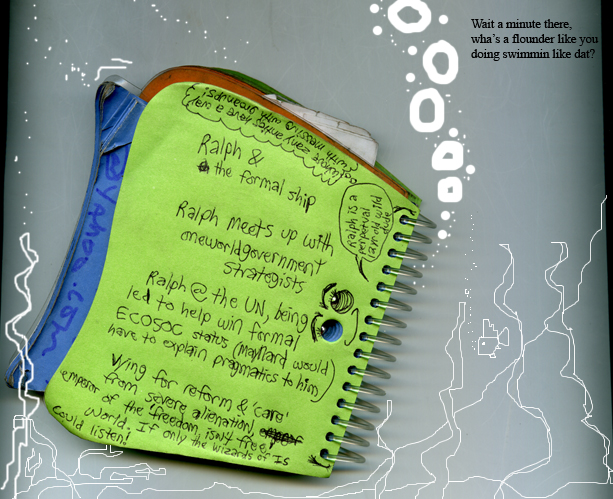 Wait a minute there,
wha's a flounder like you
doing swimmin like dat?
Ralph &
the formal ship
Ralph is a
perpetual
12yr old wild
dude
Ralph meets up with
oneworldgovernment
strategists
Ralph @ the UN, being
led to help win formal
ECOSOC status (maynard would
have to explain pragmatics to him)
Vying for reform & 'care'
from severe alienation,
emperor of the 'freedom isn't free'
world, If only the wizards of Is
could listen!
@yahoo.com